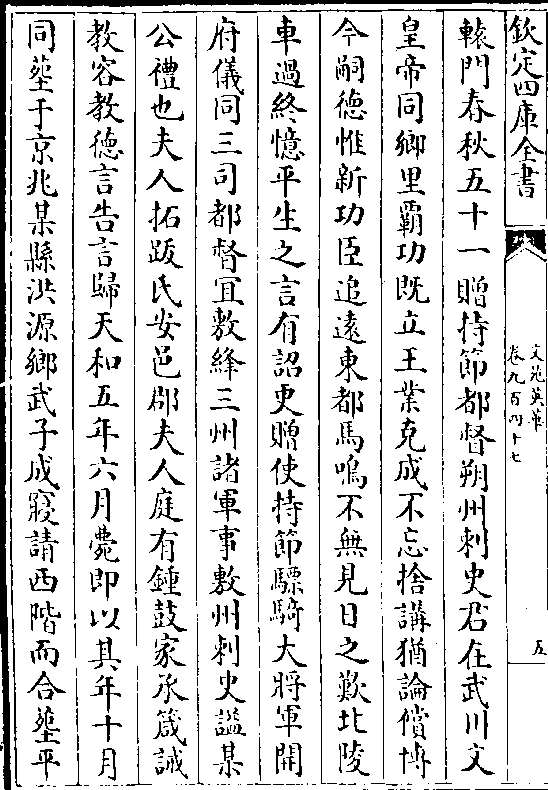 欽定四庫全書
文苑英華
卷九百四十七
五
轅門春秋五十一贈持節都督朔州刺史君在武川文
皇帝同鄉里霸功既立王業克成不忘捨講猶論償博
今嗣德惟新功臣追遠東都馬鳴不無見日之歎北陵
車過終憶平生之言有詔更贈使持節驃騎大將軍開
府儀同三司都督冝敷絳三州諸軍事敷州刺史諡某
公禮也夫人拓跋氏安邑郡夫人庭有鍾鼓家承箴誡
教容教德言告言歸天和五年六月薨即以其年十月
同塟于京兆某縣洪源鄉武子成寢請西階而合塟平